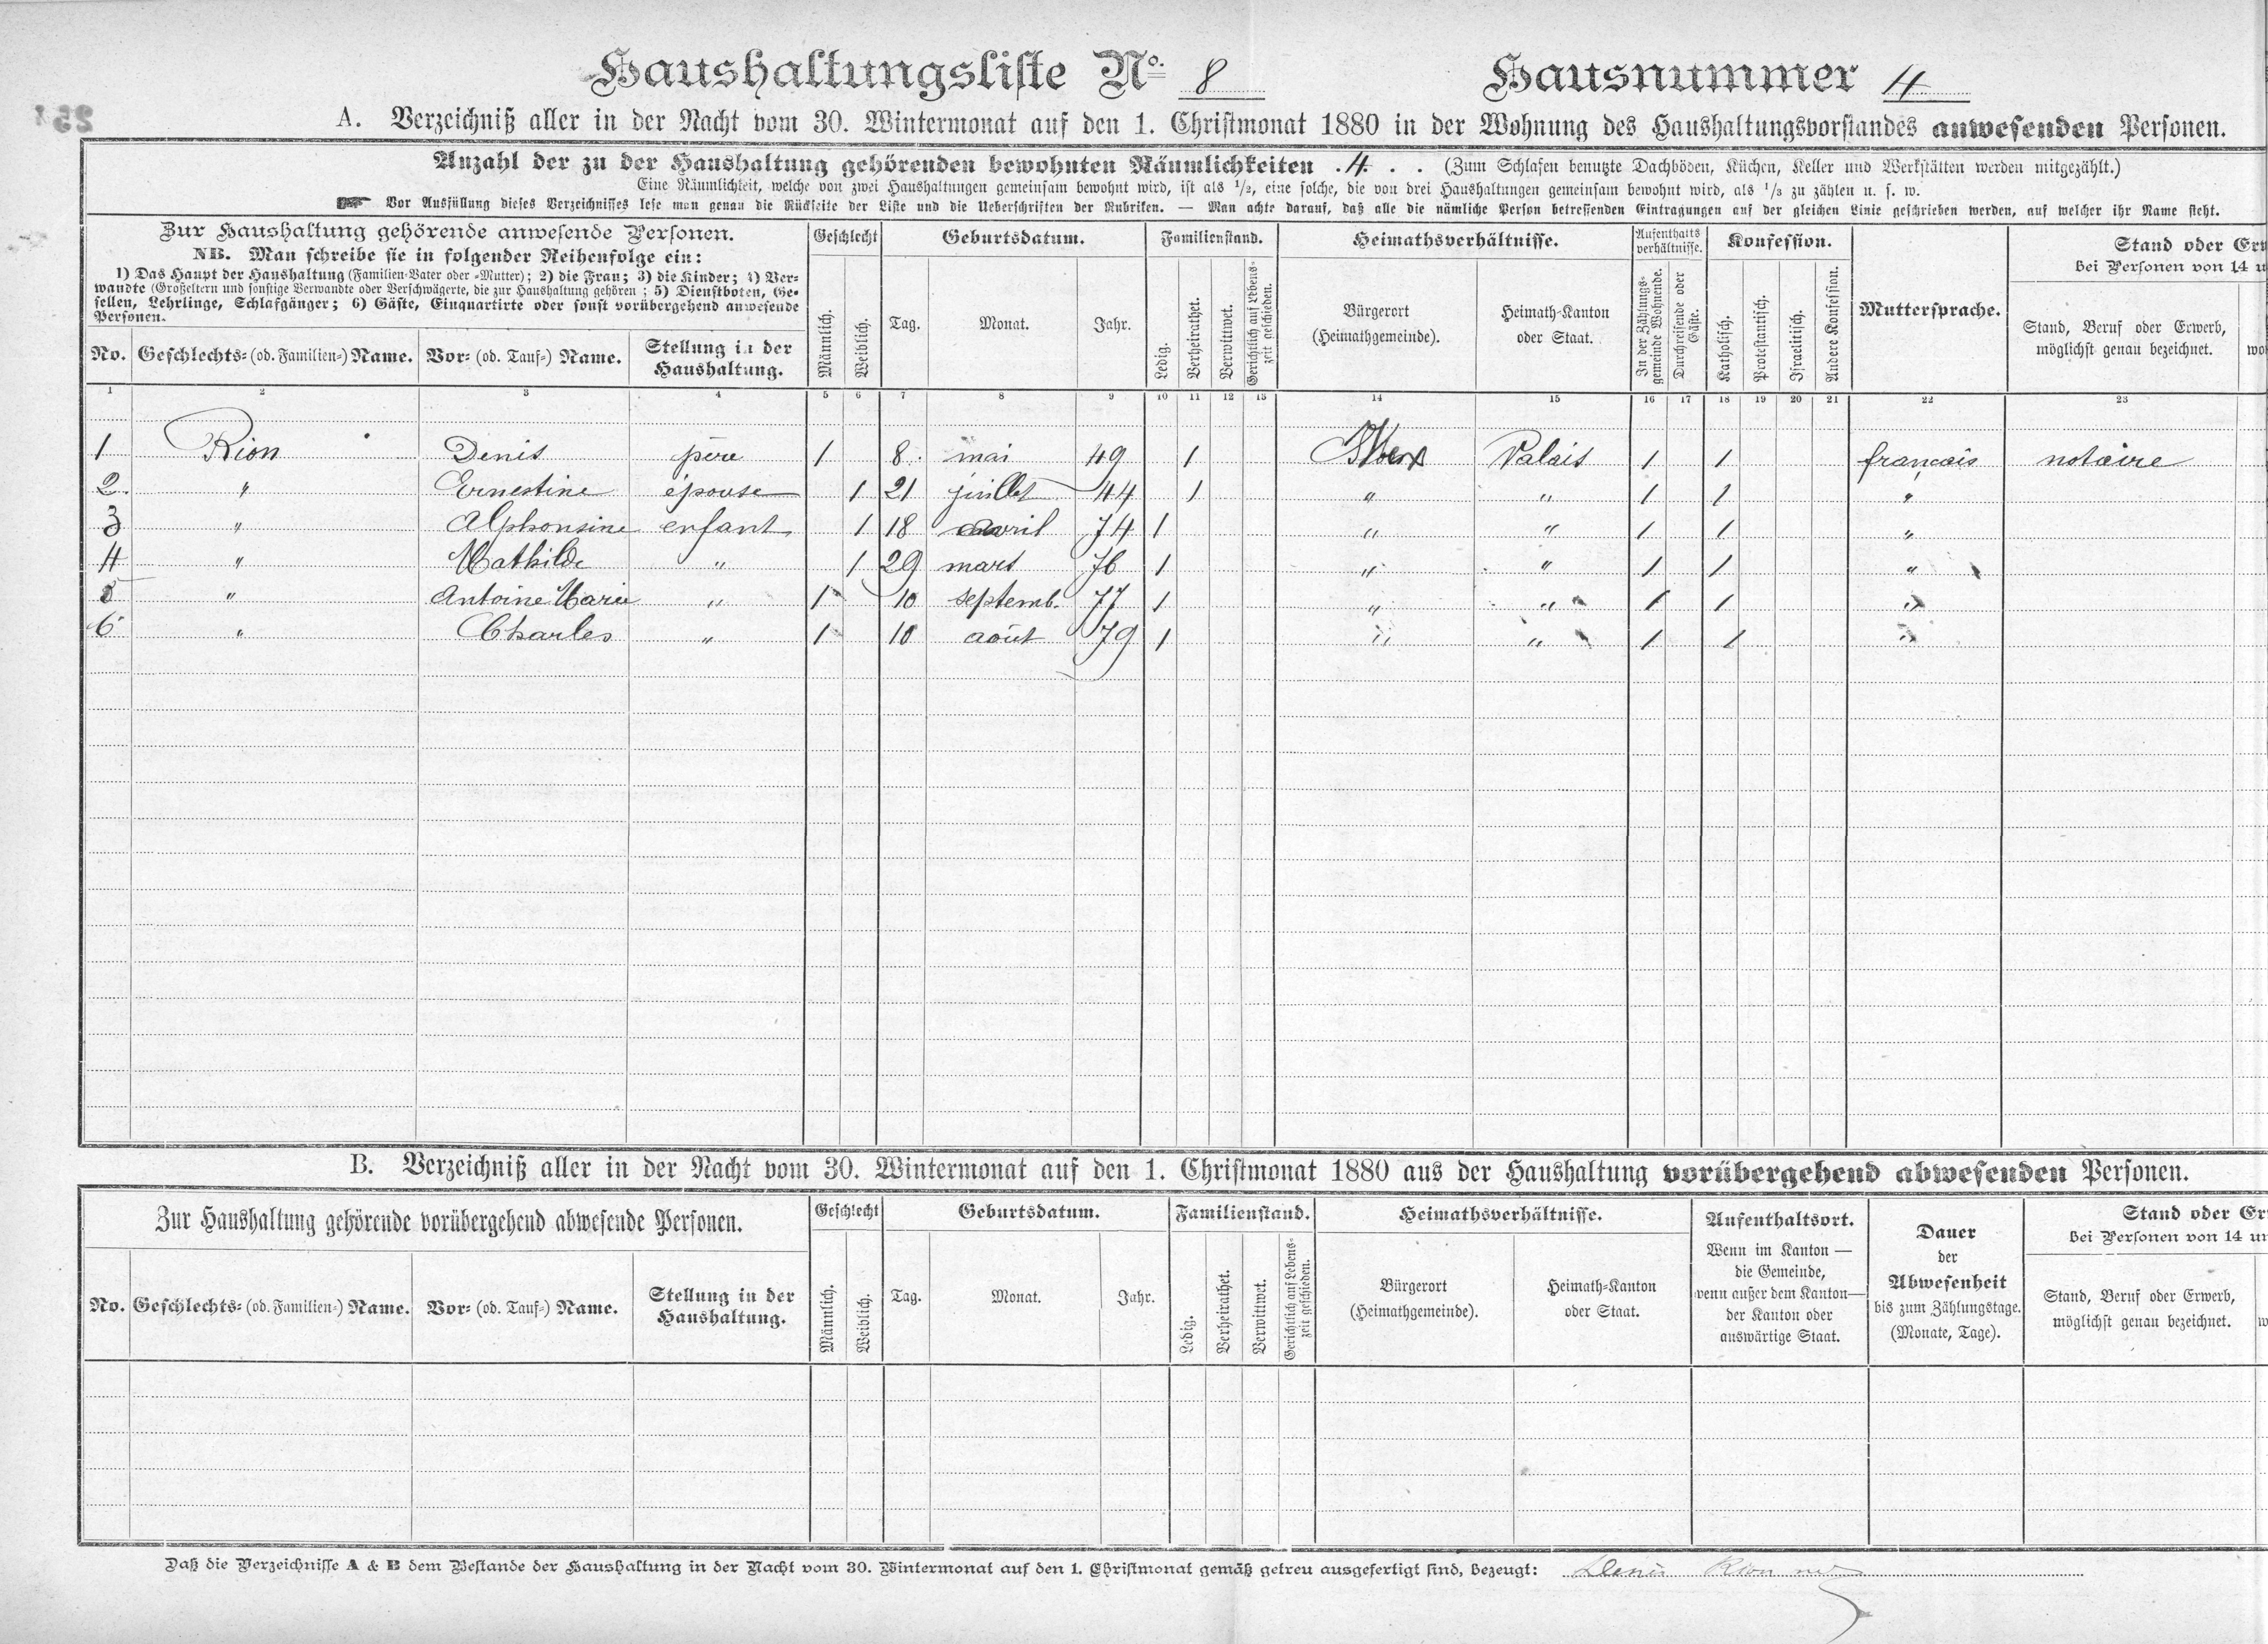 Haushaltungsliste No. 8 Hausnummer 4
A. Verzeichniß aller in der Nacht vom 30. Wintermonat auf den 1. Christmonat 1880 in der Wohnung des Haushaltungsvorstandes anwesenden Personen.
Anzahl der zu der Haushaltung gehörenden bewohnten Räumlichkeiten . 4 . . (Zum Schlafen benutzte Dachböden, Küchen, Keller und Werkstätten werden mitgezählt.)
Eine Räumlichkeit, welche von zwei Haushaltungen gemeinsam bewohnt wird, ist als 1/2, eine solche, die von drei Haushaltungen gemeinsam bewohnt wird, als 1/3 zu zählen u. s. w.
Vor Ausfüllung dieses Verzeichnisses lese man genau die Rückseite der Liste und die Ueberschriften der Rubriken. — Man achte darauf, daß alle die nämliche Person betreffenden Eintragungen auf der gleichen Linie geschrieben werden, auf welcher ihr Name steht.
Zur Haushaltung gehörende anwesende Personen.
NB. Man schreibe sie in folgender Reihenfolge ein:
1) Das Haupt der Haushaltung (Familien-Vater oder -Mutter); 2) die Frau; 3) die Kinder; 4) Ver-
wandte (Großeltern und sonstige Verwandte oder Verschwägerte, die zur Haushaltung gehören; 5) Dienstboten, Ge-
sellen, Lehrlinge, Schlafgänger; 6) Gäste, Einquartirte oder sonst vorübergehend anwesende
Personen.
No. Geschlechts- (od. Familien-) Name. Vor- (od. Tauf-) Name. Stellung in der
Haushaltung.
Geschlecht
Männlich. Weiblich.
Geburtsdatum.
Tag. Monat. Jahr.
Familienstand.
Ledig. Verheirathet. Verwittwet. Gerichtlich auf Lebens-
zeit geschieden.
Heimathsverhältnisse.
Bürgerort
(Heimathgemeinde).
Heimath-Kanton
oder Staat.
Aufenthalts
verhältnisse.
In der Zählungs-
gemeinde Wohnende.
Durchreisende oder
Gäste.
Konfession.
Katholisch. Protestantisch. Israelitisch. Andere Konfession.
Muttersprache.
Stand oder Er
bei Personen von 14 u
Stand, Beruf oder Erwerb,
möglichst genau bezeichnet.
1 2 3 4 5 6 7 8 9 10 11 12 13 14 15 16 17 18 19 20 21 22 23
1 Rion Denis père 1 8 mai 49 1 Valais 1 1 français notaire
2 " Ernestine épouse 1 21 juillet 44 1 " " 1 1 "
3 " Alphonsine enfant 1 18 avril 74 1 " " 1 1 "
4 " Mathilde " 1 29 mars 76 1 " " 1 1 "
5 " Antoine Marie " 1 10 septemb. 77 1 " " 1 1 "
6 " Charles " 1 10 août 79 1 " " 1 1 "
B. Verzeichniß aller in der Nacht vom 30. Wintermonat auf den 1. Christmonat 1880 aus der Haushaltung vorübergehend abwesenden Personen.
Zur Haushaltung gehörende vorübergehend abwesende Personen.
No. Geschlechts- (od. Familien-) Name. Vor- (od. Tauf-) Name. Stellung in der
Haushaltung.
Geschlecht
Männlich. Weiblich.
Geburtsdatum.
Tag. Monat. Jahr.
Familienstand.
Ledig. Verheirathet. Verwittwet. Gerichtlich auf Lebens-
zeit geschieden.
Heimathsverhältnisse.
Bürgerort
(Heimathgemeinde).
Heimath-Kanton
oder Staat.
Aufenthaltsort.
Wenn im Kanton —
die Gemeinde,
wenn außer dem Kanton—
der Kanton oder
auswärtige Staat.
Dauer
der
Abwesenheit
bis zum Zählungstage.
(Monate, Tage).
Stand oder Er
bei Personen von 14 u
Stand, Beruf oder Erwerb,
möglichst genau bezeichnet.
Daß die Verzeichnisse A & B dem Bestande der Haushaltung in der Nacht vom 30. Wintermonat auf den 1. Christmonat gemäß getreu ausgefertigt sind, bezeugt: Denis Rion